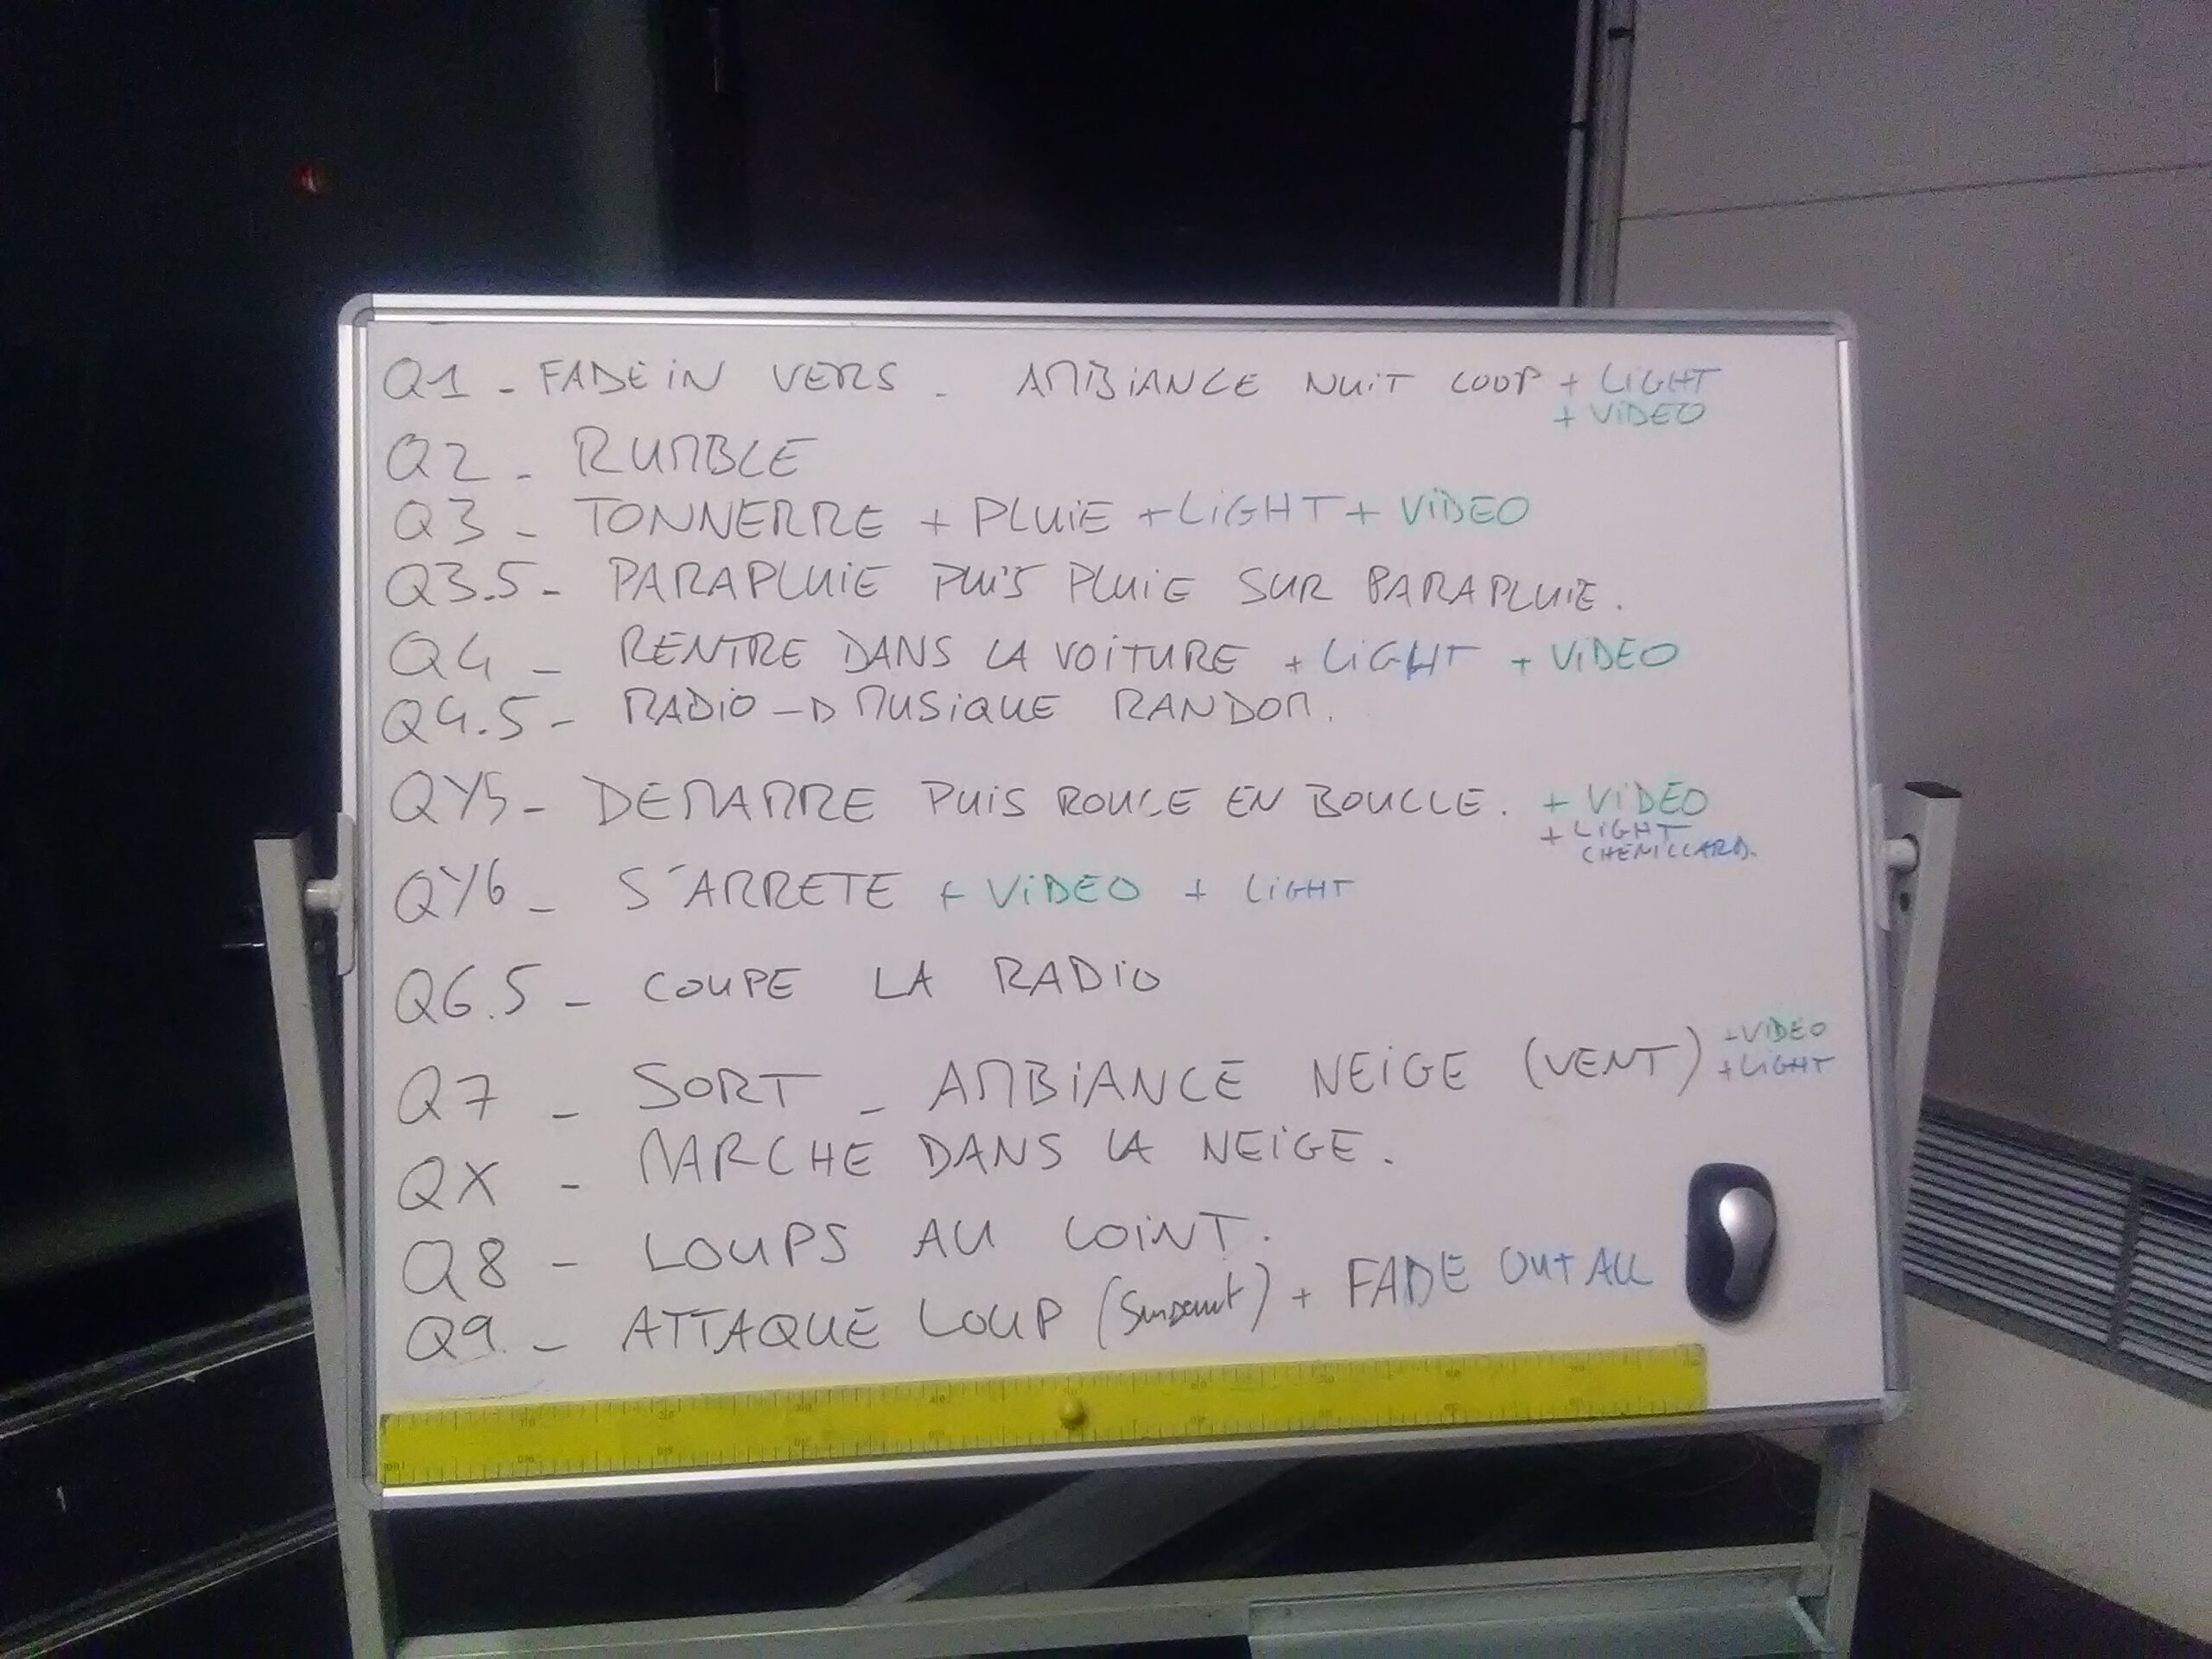 Q1 - FADE IN VERS - AMBIANCE NUIT LOOP + LIGHT
+ VIDEO
Q2 - RUMBLE
Q3 - TONNERRE + PLUIE + LIGHT + VIDEO
Q3.5 - PARAPLUIE PUIS PLUIE SUR PARAPLUIE.
Q4 - RENTRE DANS LA VOITURE + LIGHT + VIDEO
Q4.5 - RADIO -D MUSIQUE RANDOM.
QY5 - DEMARRE PUIS ROULE EN BOUCLE. + VIDEO
+ LIGHT
CHENILLARD.
QY6 - S'ARRETE + VIDEO + LIGHT
Q6.5 - COUPE LA RADIO
Q7 - SORT - AMBIANCE NEIGE (VENT) + VIDEO
+ LIGHT
QX - MARCHE DANS LA NEIGE.
Q8 - LOUPS AU LOINT.
Q9 - ATTAQUE LOUP + FADE OUT ALL